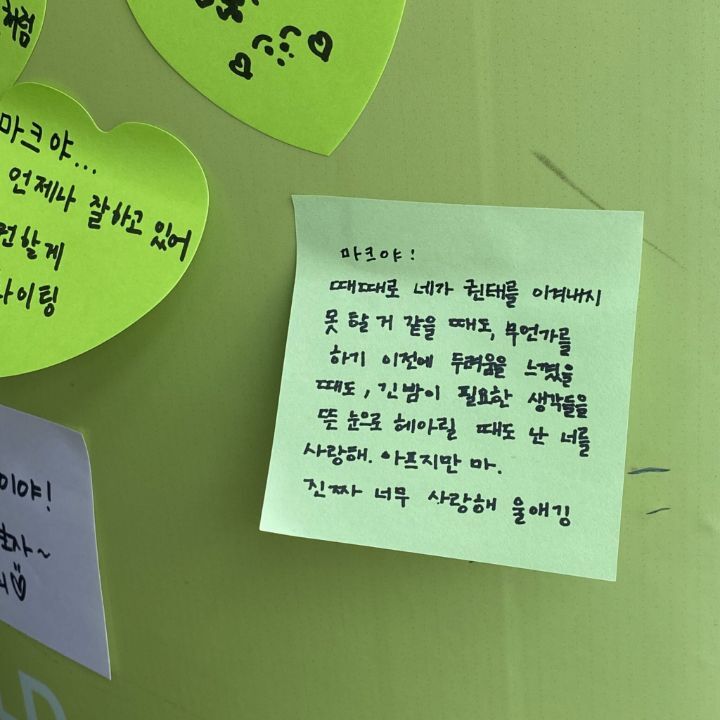 처럼
마크야...
언제나 잘하고 있어
할게
이팅
마크야!
때때로 네가 권태를 이겨내지
못 할 거 같을 때도, 무언가를
하기 이전에 두려움을 느꼈을
때도, 긴밤이 필요한 생각들을
뜬 눈으로 헤아릴 때도 난 너를
사랑해. 아프지만 마.
진짜 너무 사랑해 울애깅
이야!
자~